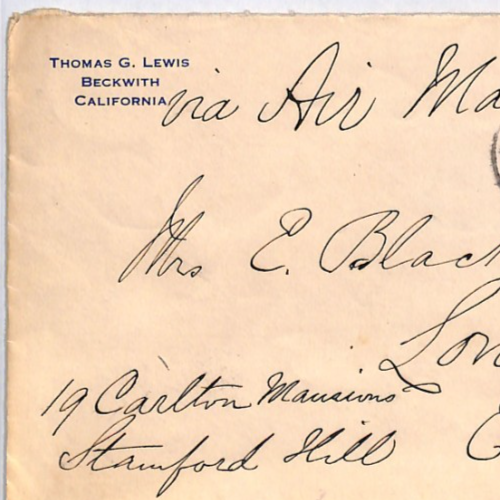 Thomas G. Lewis
Beckwith
California
via Air Ma
Mrs E. Black
Lon
19 Carlton Mansions
Stamford Hill